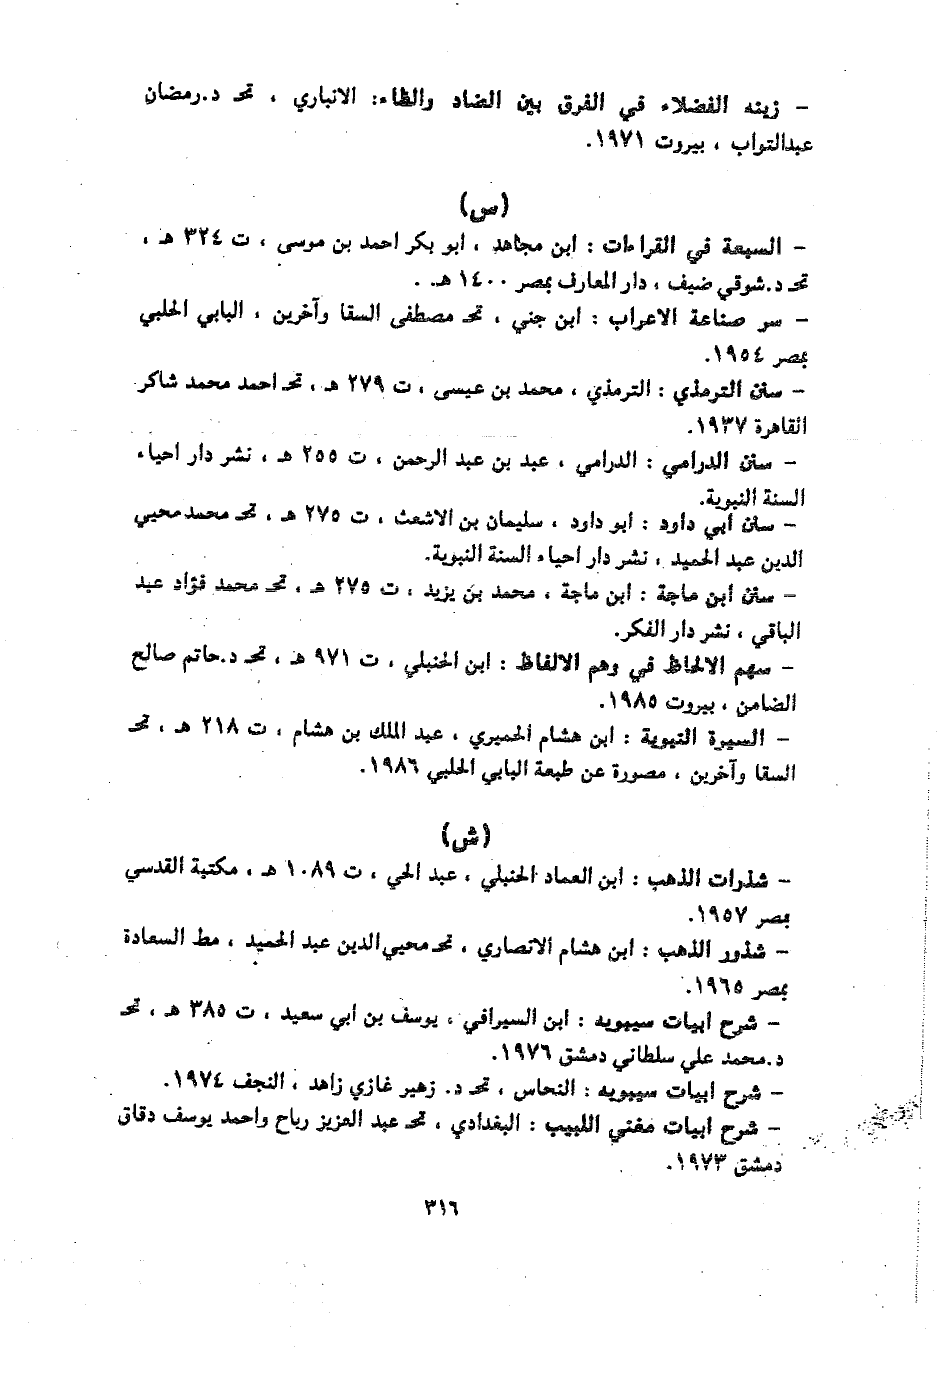 - زينه الفضلاء في الفرق بين الضاد والظاء: الانباري ، تحـ د.رمضان
عبدالتواب ، بيروت ١٩٧١.
(س)
- السبعة في القراءات : ابن مجاهد ، ابو بكر احمد بن موسى ، ت ٣٢٤ هـ ،
تحـ د.شوقي ضيف ، دار المعارف بمصر ١٤٠٠ هـ .
- سر صناعة الاعراب : ابن جني ، تحـ مصطفى السقا وآخرين ، البابي الحلبي
بمصر ١٩٥٤.
- سنن الترمذي : الترمذي ، محمد بن عيسى ، ت ٢٧٩ هـ ، تحـ احمد محمد شاكر
القاهرة ١٩٣٧.
- سنن الدرامي : الدرامي ، عبد بن عبد الرحمن ، ت ٢٥٥ هـ ، نشر دار احياء
السنة النبوية.
- سنن أبي داود : ابو داود ، سليمان بن الاشعث ، ت ٢٧٥ هـ ، تحـ محمد محيي
الدين عبد الحميد ، نشر دار احياء السنة النبوية.
- سنن ابن ماجة : ابن ماجة ، محمد بن يزيد ، ت ٢٧٥ هـ ، تحـ محمد فؤاد عبد
الباقي ، نشر دار الفكر.
- سهم الالحاظ في وهم الالفاظ : ابن الحنبلي ، ت ٩٧١ هـ ، تحـ د.حاتم صالح
الضامن ، بيروت ١٩٨٥.
- السيرة النبوية : ابن هشام الحميري ، عبد الملك بن هشام ، ت ٢١٨ هـ ، تحـ
السقا وآخرين ، مصورة عن طبعة البابي الحلبي ١٩٨٦.
(ش)
- شذرات الذهب : ابن العماد الحنبلي ، عبد الحي ، ت ١٠٨٩ هـ ، مكتبة القدسي
بمصر ١٩٥٧.
- شذور الذهب : ابن هشام الانصاري ، تحـ محيي الدين عبد الحميد ، مط السعادة
بمصر ١٩٦٥.
- شرح ابيات سيبويه : ابن السيرافي ، يوسف بن ابي سعيد ، ت ٣٨٥ هـ ، تحـ
د.محمد علي سلطاني دمشق ١٩٧٦.
- شرح ابيات سيبويه : النحاس ، تحـ د. زهير غازي زاهد ، النجف ١٩٧٤.
- شرح ابيات مغني اللبيب : البغدادي ، تحـ عبد العزيز رباح واحمد يوسف دقاق
دمشق ١٩٧٣.
٣١٦